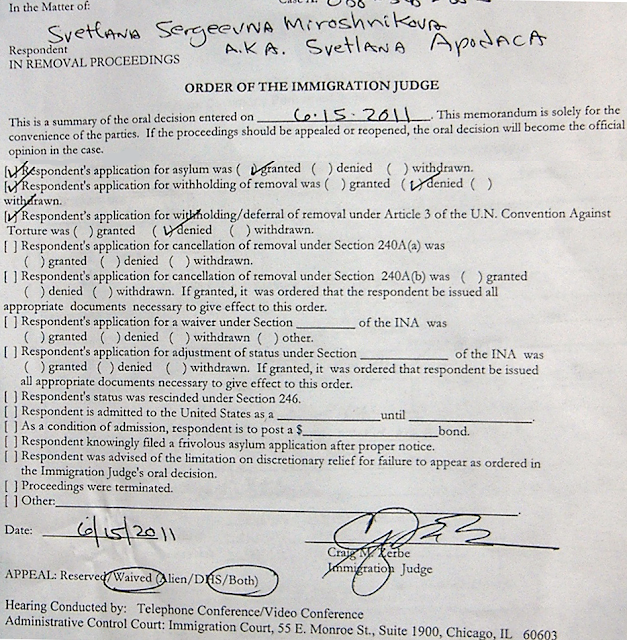 In the Matter of:
Svetlana Sergeevna Miroshnikova
A.K.A. Svetlana Apodaca
Respondent
IN REMOVAL PROCEEDINGS
ORDER OF THE IMMIGRATION JUDGE
This is a summary of the oral decision entered on 6.15.2011. This memorandum is solely for the
convenience of the parties. If the proceedings should be appealed or reopened, the oral decision will become the official
opinion in the case.
[✓] Respondent's application for asylum was ( ✓ )granted ( ) denied ( ) withdrawn.
[✓] Respondent's application for withholding of removal was ( ) granted (✓) denied ( )
withdrawn.
[✓] Respondent's application for withholding/deferral of removal under Article 3 of the U.N. Convention Against
Torture was ( ) granted (✓)denied ( ) withdrawn.
[ ] Respondent's application for cancellation of removal under Section 240A(a) was
( ) granted ( ) denied ( ) withdrawn.
[ ] Respondent's application for cancellation of removal under Section 240A(b) was ( ) granted
( ) denied ( ) withdrawn. If granted, it was ordered that the respondent be issued all
appropriate documents necessary to give effect to this order.
[ ] Respondent's application for a waiver under Section ________ of the INA was
( )granted ( ) denied ( ) withdrawn ( ) other.
[ ] Respondent's application for adjustment of status under Section ____________ of the INA was
( )granted ( ) denied ( ) withdrawn. If granted, it was ordered that respondent be issued
all appropriate documents necessary to give effect to this order.
[ ] Respondent's status was rescinded under Section 246.
[ ] Respondent is admitted to the United States as a __________________until _____________.
[ ] As a condition of admission, respondent is to post a $__________________bond.
[ ] Respondent knowingly filed a frivolous asylum application after proper notice.
[ ] Respondent was advised of the limitation on discretionary relief for failure to appear as ordered in
the Immigration Judge's oral decision.
[ ] Proceedings were terminated.
[ ] Other:
Date: 6/15/2011
Craig M. Zerbe
Immigration Judge
APPEAL: Reserved/Waived (Alien/DHS/Both)
Hearing Conducted by: Telephone Conference/Video Conference
Administrative Control Court: Immigration Court, 55 E. Monroe St., Suite 1900, Chicago, IL 60603